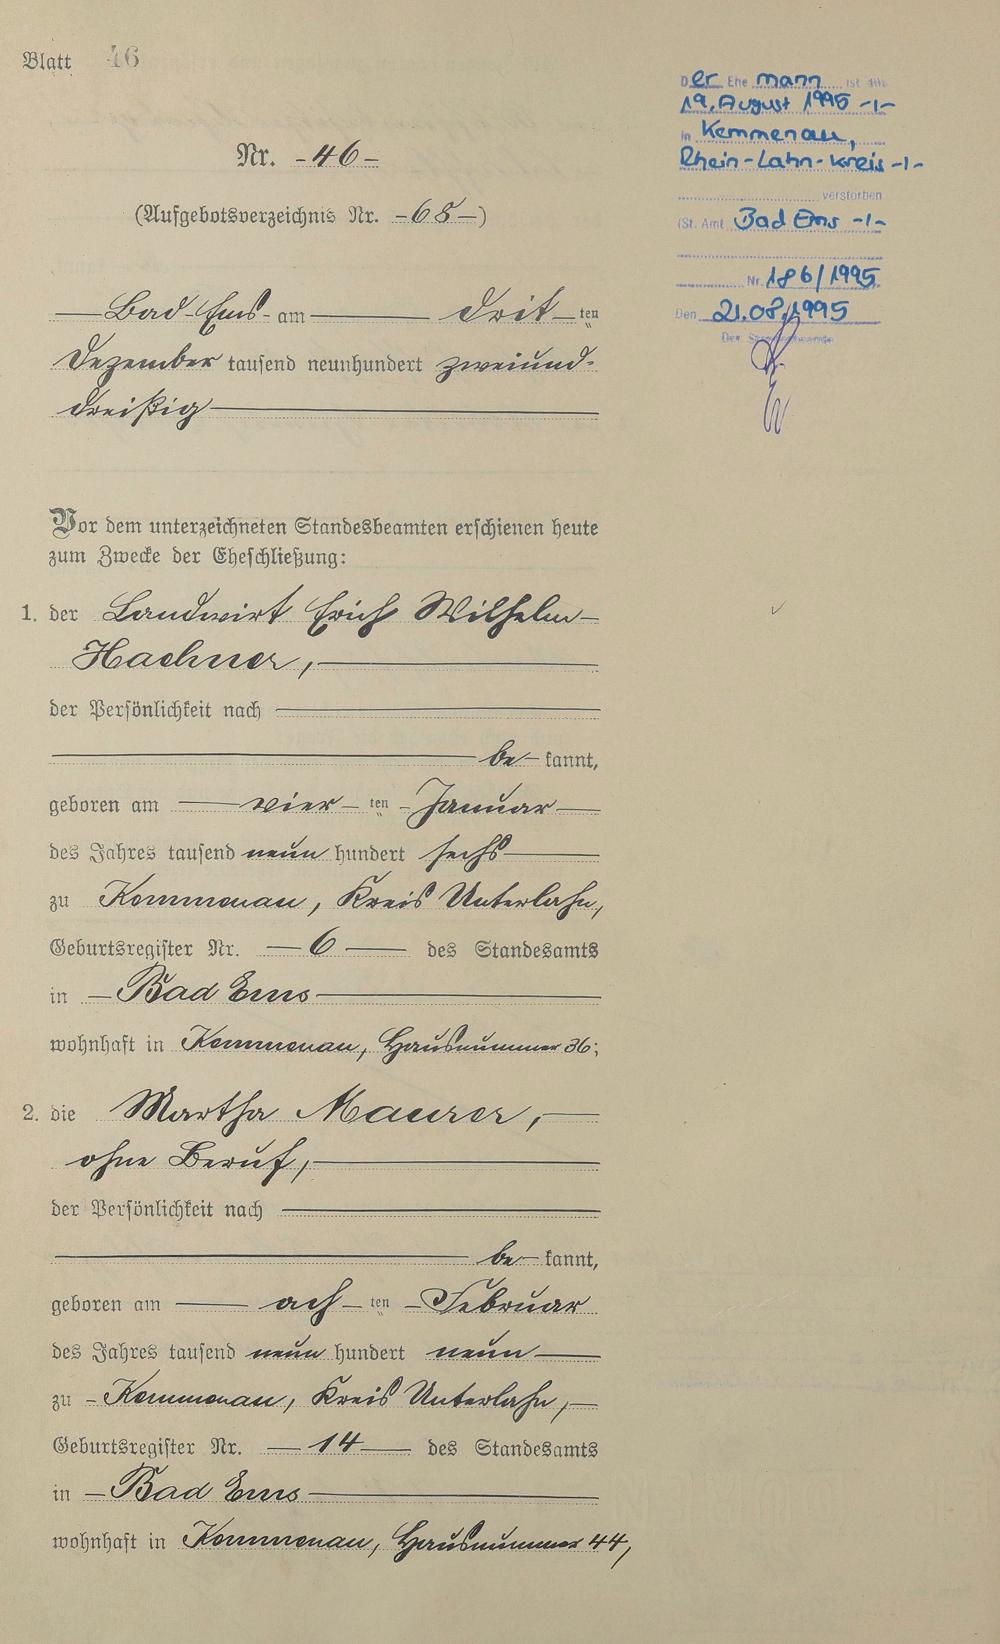 Blatt 46
Nr. -46-
(Aufgebotsverzeichnis Nr. -68-)
Bad Ems - am drit ten
Dezember tausend neunhundert zweiund-
dreißig
Vor dem unterzeichneten Standesbeamten erschienen heute
zum Zwecke der Eheschließung:
1. der Landwirt Erich Wilhelm
Haehner,
der Persönlichkeit nach
be kannt,
geboren am vier ten Januar
des Jahres tausend neun hundert sechs
zu Kemmenau, Kreis Unterlahn,
Geburtsregister Nr. 6 des Standesamts
in Bad Ems
wohnhaft in Kemmenau, Hausnummer 36;
2. die Martha Maurer,
ohne Beruf,
der Persönlichkeit nach
be kannt,
geboren am ach ten Februar
des Jahres tausend neun hundert neun
zu Kemmenau, Kreis Unterlahn,
Geburtsregister Nr. 14 des Standesamts
in Bad Ems
wohnhaft in Kemmenau, Hausnummer 44,
Der Ehemann ist am
19. August 1995 -/-
in Kemmenau,
Rhein-Lahn-Kreis -/-
verstorben
(St. Amt Bad Ems -/-
Nr. 186/1995
Den 21.08.1995
Der Standesbeamte